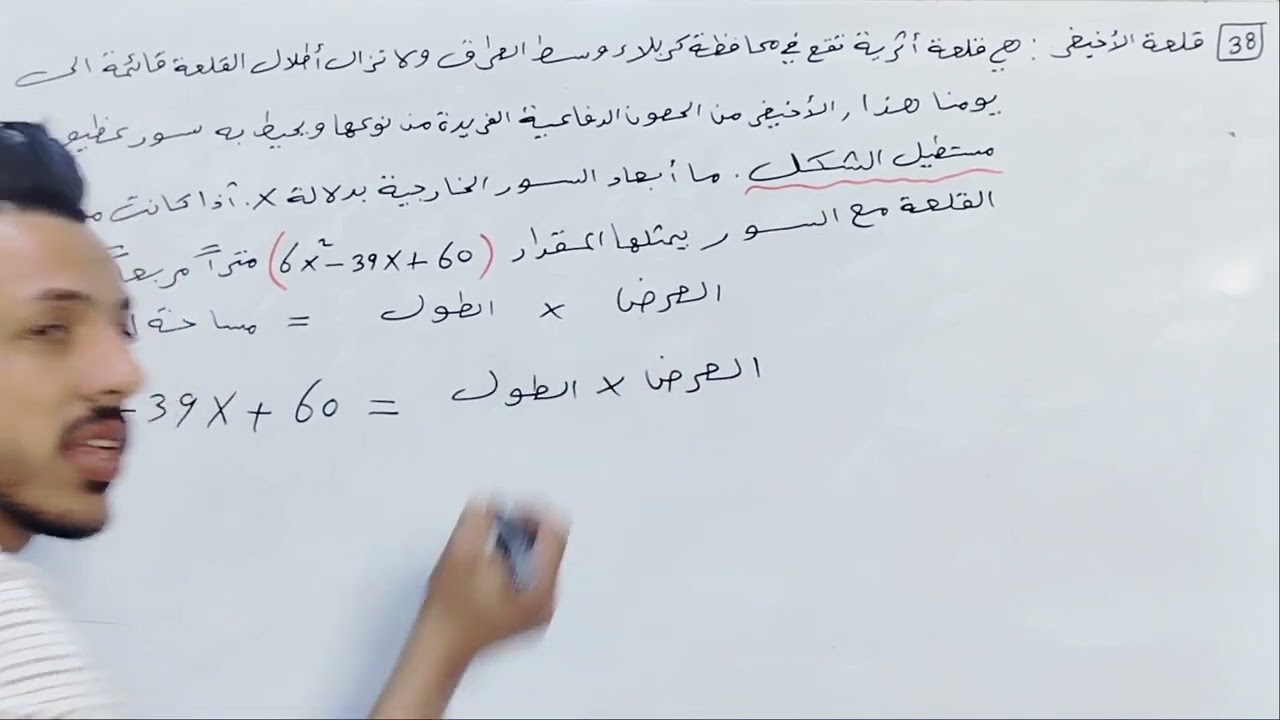 38 قلعة الأخيضر : هي قلعة أثرية تقع في محافظة كربلاء وسط العراق ولا تزال أطلال القلعة قائمة الى
يومنا هذا , الأخيضر من الحصون الدفاعية الفريدة من نوعها ويحيط به سور عظيم
مستطيل الشكل . ما أبعاد السور الخارجية بدلالة x . أذا كانت
القلعة مع السور يمثلها المقدار (6x²-39x+60) متراً مربعاً
مساحة = الطول x العرض
-39x+60 = الطول x العرض